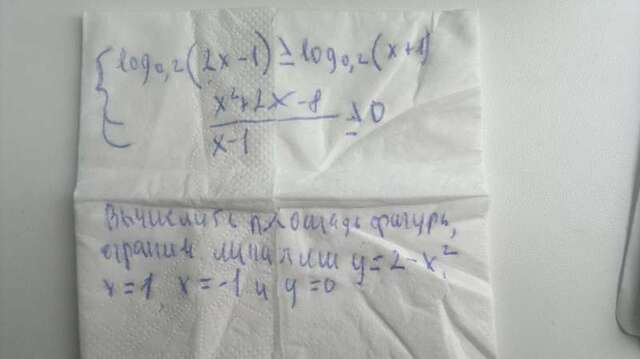 log₀,₂(2x-1) ≥ log₀,₂(x+1)
x²+2x-8
x-1
≥ 0
Вычислить площадь фигуры,
огранич линиями y=2-x²,
x=1, x=-1 и y=0